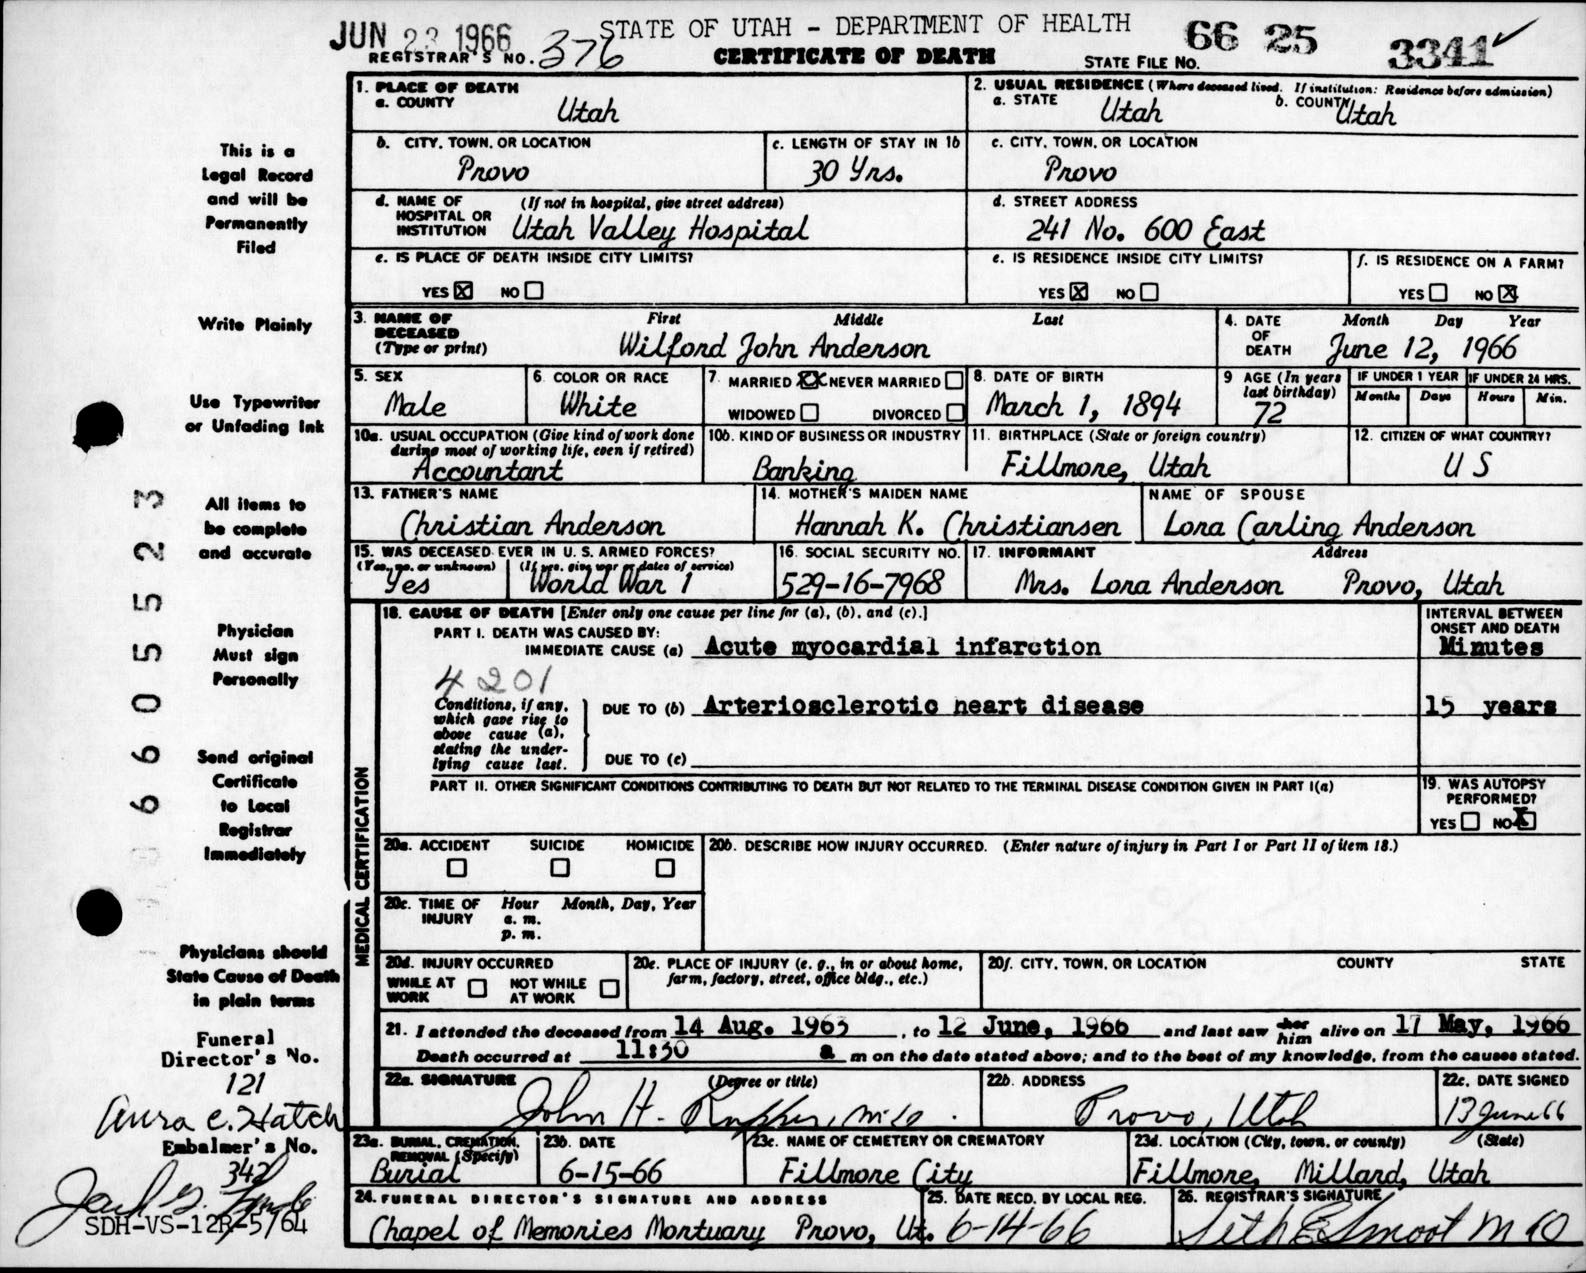 JUN 23 1966
STATE OF UTAH - DEPARTMENT OF HEALTH
66 25 3341
REGISTRAR'S NO. 376
CERTIFICATE OF DEATH
STATE FILE NO.
1. PLACE OF DEATH
a. COUNTY Utah
2. USUAL RESIDENCE (Where deceased lived. If institution: Residence before admission)
a. STATE Utah b. COUNTY Utah
b. CITY, TOWN, OR LOCATION Provo
c. LENGTH OF STAY IN 1b 30 Yrs.
c. CITY, TOWN, OR LOCATION Provo
d. NAME OF HOSPITAL OR INSTITUTION (If not in hospital, give street address) Utah Valley Hospital
d. STREET ADDRESS 241 No. 600 East
e. IS PLACE OF DEATH INSIDE CITY LIMITS?
YES X NO
e. IS RESIDENCE INSIDE CITY LIMITS?
YES X NO
f. IS RESIDENCE ON A FARM?
YES NO X
3. NAME OF DECEASED (Type or print) First Middle Last
Wilford John Anderson
4. DATE OF DEATH Month Day Year
June 12, 1966
5. SEX Male
6. COLOR OR RACE White
7. MARRIED X NEVER MARRIED
WIDOWED DIVORCED
8. DATE OF BIRTH March 1, 1894
9 AGE (In years last birthday) 72
IF UNDER 1 YEAR Months Days
IF UNDER 24 HRS. Hours Min.
10a. USUAL OCCUPATION (Give kind of work done during most of working life, even if retired) Accountant
10b. KIND OF BUSINESS OR INDUSTRY Banking
11. BIRTHPLACE (State or foreign country) Fillmore, Utah
12. CITIZEN OF WHAT COUNTRY? U S
13. FATHER'S NAME Christian Anderson
14. MOTHER'S MAIDEN NAME Hannah K. Christiansen
NAME OF SPOUSE Lora Carling Anderson
15. WAS DECEASED EVER IN U. S. ARMED FORCES?
(Yes, no, or unknown) Yes
(If yes, give war or dates of service) World War 1
16. SOCIAL SECURITY NO. 529-16-7968
17. INFORMANT Address
Mrs. Lora Anderson Provo, Utah
18. CAUSE OF DEATH [Enter only one cause per line for (a), (b), and (c).]
INTERVAL BETWEEN ONSET AND DEATH
PART I. DEATH WAS CAUSED BY:
IMMEDIATE CAUSE (a) Acute myocardial infarction Minutes
4201
Conditions, if any, which gave rise to above cause (a), stating the underlying cause last.
DUE TO (b) Arteriosclerotic heart disease 15 years
DUE TO (c)
PART II. OTHER SIGNIFICANT CONDITIONS CONTRIBUTING TO DEATH BUT NOT RELATED TO THE TERMINAL DISEASE CONDITION GIVEN IN PART I(a)
19. WAS AUTOPSY PERFORMED?
YES NO X
MEDICAL CERTIFICATION
20a. ACCIDENT SUICIDE HOMICIDE
20b. DESCRIBE HOW INJURY OCCURRED. (Enter nature of injury in Part I or Part II of item 18.)
20c. TIME OF INJURY Hour Month, Day, Year
a. m.
p. m.
20d. INJURY OCCURRED
WHILE AT WORK NOT WHILE AT WORK
20e. PLACE OF INJURY (e. g., in or about home, farm, factory, street, office bldg., etc.)
20f. CITY, TOWN, OR LOCATION COUNTY STATE
21. I attended the deceased from 14 Aug. 1963, to 12 June, 1966 and last saw her him alive on 17 May, 1966
Death occurred at 11:30 a m on the date stated above; and to the best of my knowledge, from the causes stated.
22a. SIGNATURE (Degree or title)
John H.
22b. ADDRESS Provo, Utah
22c. DATE SIGNED 13 June 66
23a. BURIAL, CREMATION, REMOVAL (Specify) Burial
23b. DATE 6-15-66
23c. NAME OF CEMETERY OR CREMATORY Fillmore City
23d. LOCATION (City, town, or county) (State)
Fillmore, Millard, Utah
24. FUNERAL DIRECTOR'S SIGNATURE AND ADDRESS
Chapel of Memories Mortuary Provo, Ut.
25. DATE RECD. BY LOCAL REG. 6-14-66
26. REGISTRAR'S SIGNATURE
Seth E Smoot M D
This is a
Legal Record
and will be
Permanently
Filed
Write Plainly
Use Typewriter
or Unfading Ink
All items to
be complete
and accurate
Physician
Must sign
Personally
Send original
Certificate
to Local
Registrar
Immediately
Physicians should
State Cause of Death
in plain terms
Funeral
Director's No.
121
Anra C. Hatch
Embalmer's No.
342
SDH-VS-12R-5/64
66055523